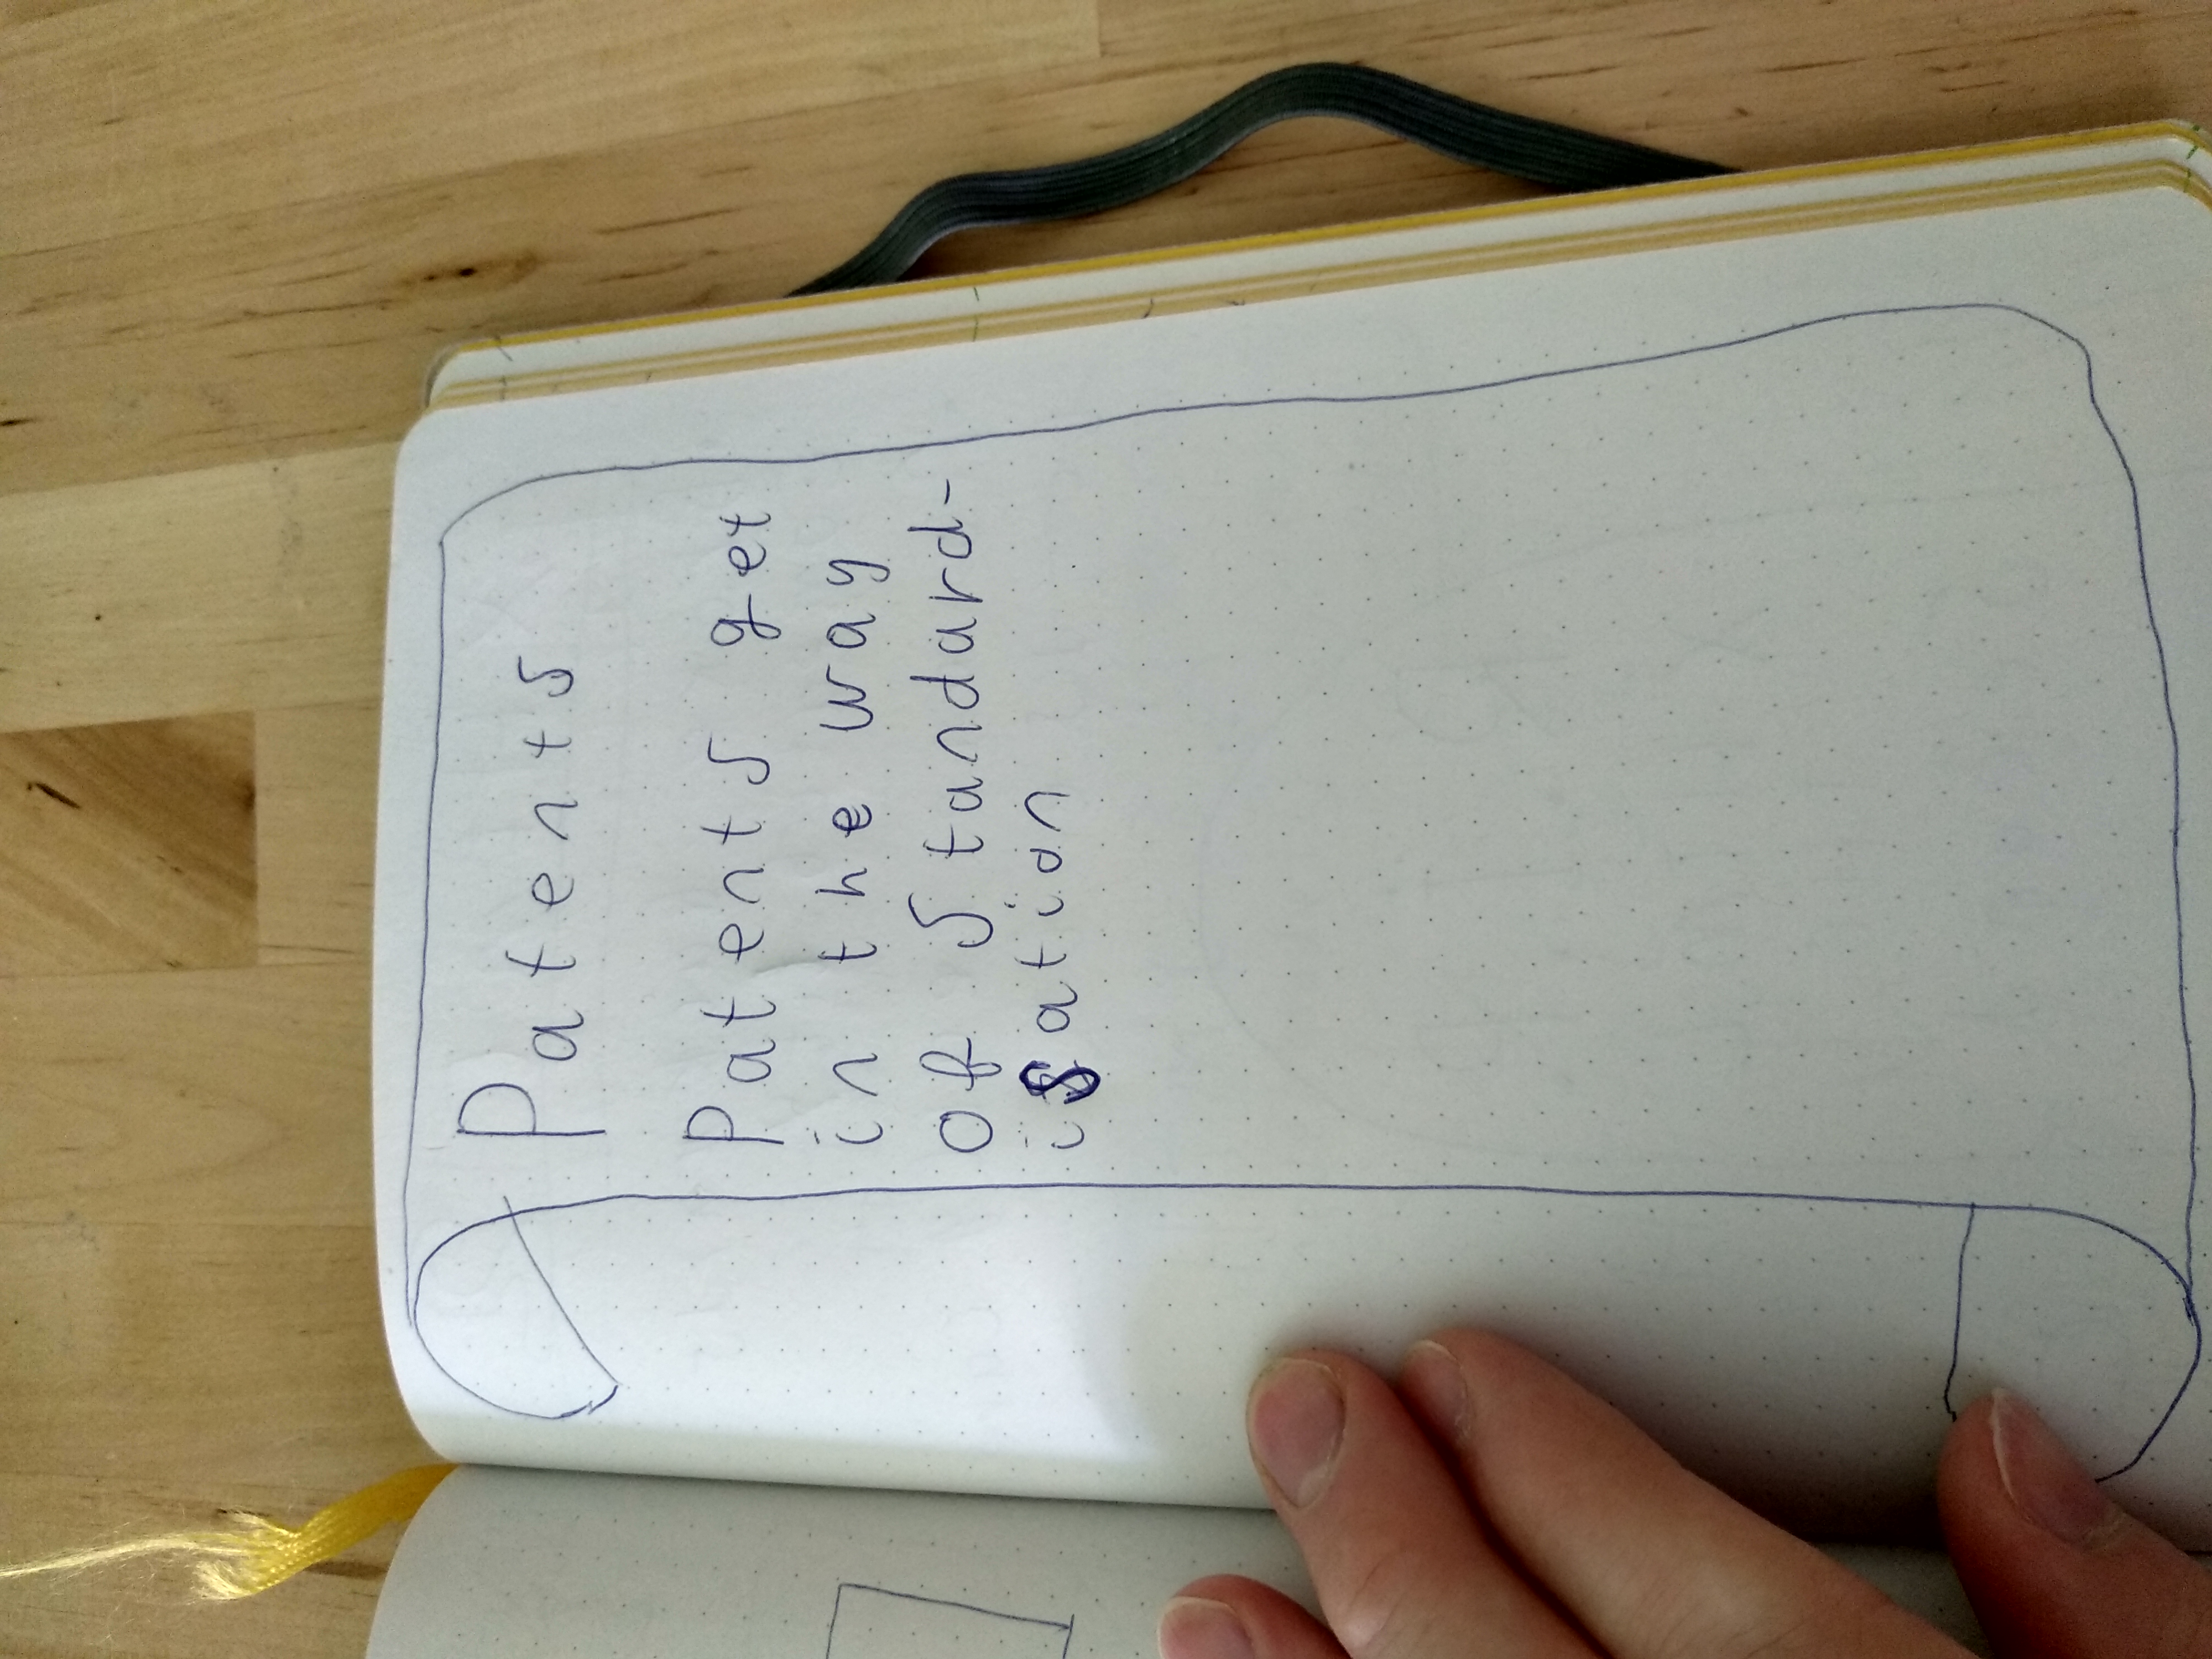 Patents
Patents get
in the way
of Standard-
isation